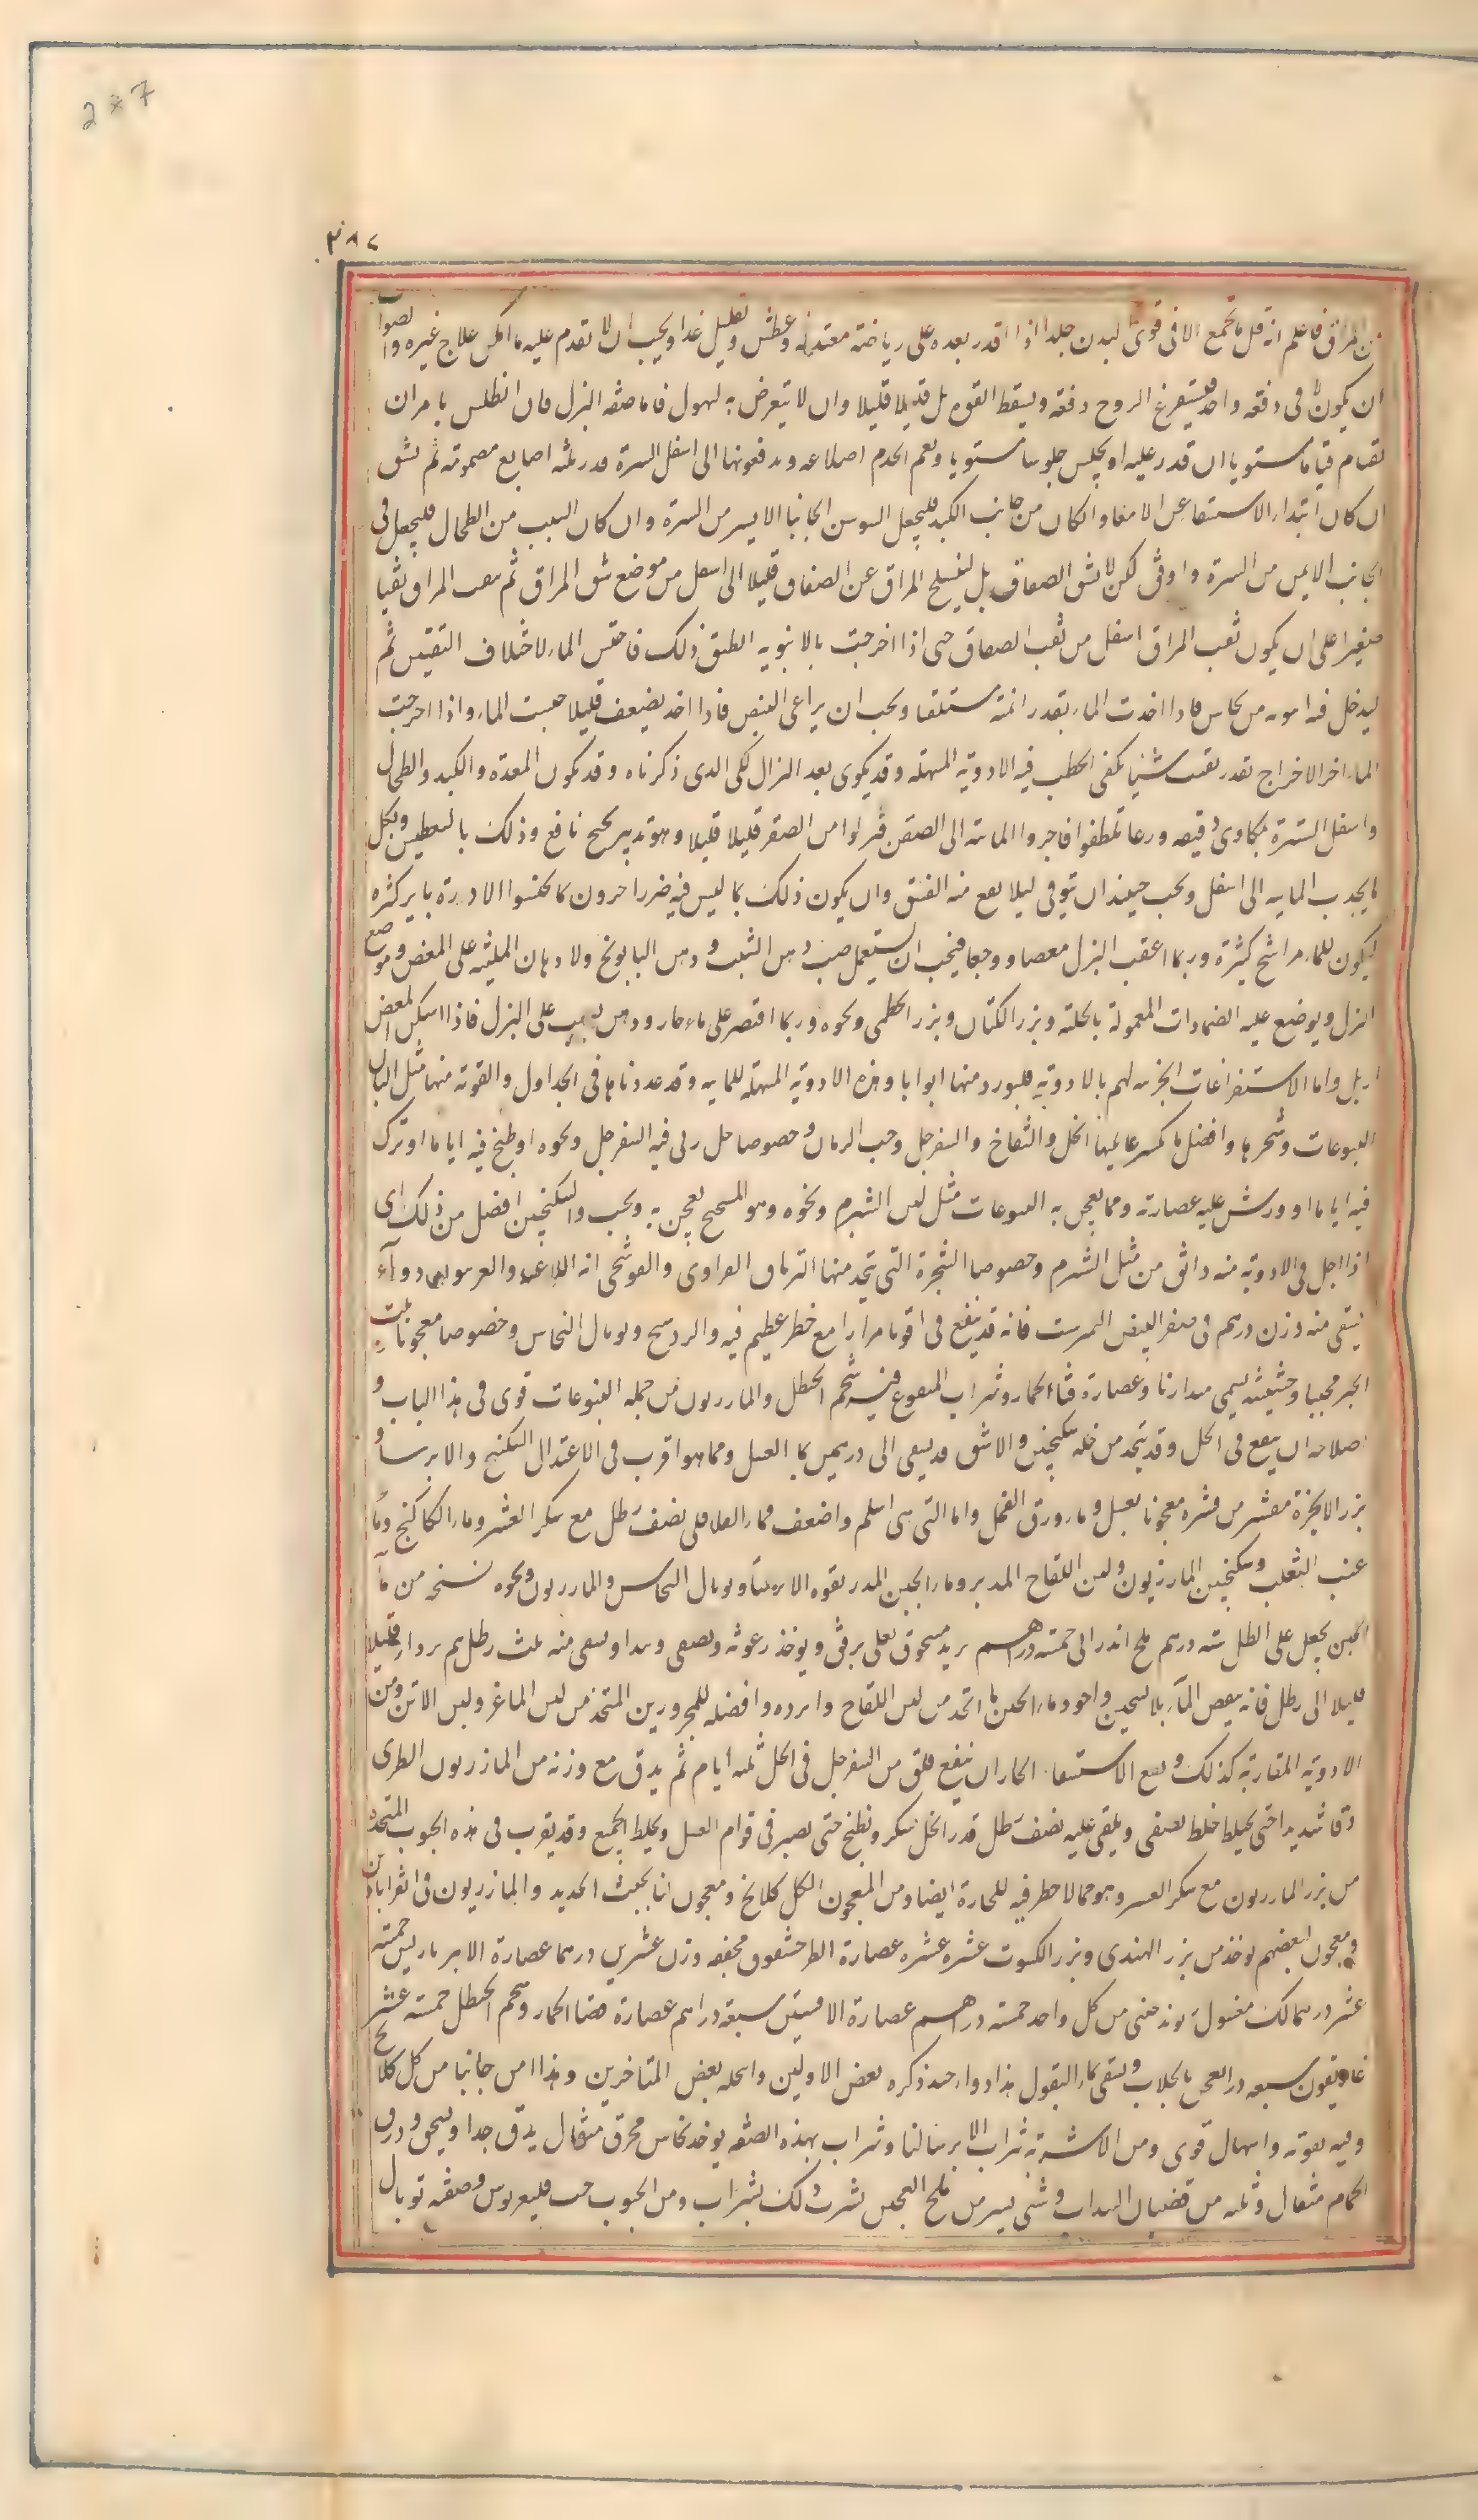 2*7
٣٨٧
فاعلم انه قل ما تجمع الا فى قوى البدن جلدا اذا اقدر بعده على رياضة معتدلة وعطش وتقليل غدا ويجيب ان لا تقدم عليه ما امكن علاج غيره والصواب
ان يكون لا فى دفعة واحدة فيستفرغ الروح دفعة ويسقط القوه بل قليلا قليلا وان لا يتعرض به لهول فاما صفه البزل فان انطلس يا مران
تقام قياما مستويا ان قدر عليه او يجلس جلوسا مستويا ويعم الحدم اصلاعه ويدفعونها الى اسفل السرة قدر ثلثه اصابع مصمومة ثم يشق
ان كان ابتداء الاستسقا عن الامعا وان كان من جانب الكبد فليجعل الجانب الايسر من السرة وان كان السبب من الطحال فليجعل فى
الجانب الايمن من السرة وارفق لكن لا تشق الصفاق بل ليسلخ المراق عن الصفاق قليلا الى اسفل من موضع شق المراق ثم يثقب المراق ثقبا
صغيرا على ان يكون ثقب المراق اسفل من ثقب الصفاق حتى اذا اخرجت بالانبوبه انطبق ذلك فاحتبس الماء لاختلاف الثقبين ثم
ليدخل فيه انبوبه من نحاس فاذا اخذت الماء بقدر انمته مستلقيا ويجب ان يراعى النبض فاذا اخذ يضعف قليلا حبست الماء واذا اخرجت
الماء اخر الاخراج بقدر بقيت شيئا يكفى الخطب فيه الادوية المسهله وقد يكوى بعد البزل الكى الدى ذكرناه وقد يكون المعدة والكبد والطحال
واسفل السرة بمكاوى دقيقه وربما تلطفوا فاجروا المائية الى الصفن فبزلوا من الصفن قليلا قليلا وهو تدبير نجيح نافع وذلك بالتعطيس وبكل
ما يجدب المائيه الى اسفل ويجب حينئذ ان يتوقى ليلا يقع منه الفتق وان يكون ذلك بما ليس فيه ضرر
ليكون للماء مراشح كثيرة وربما اعقب البزل مغصا ووجعا فيجب ان يستعمل صب دهن الشبت ودهن البابونج والادهان الملينه على المغص وموضع
البزل ويوضع عليه الضمادات المعمولة بالحلبه وبزر الكتان وبزر الخطمى ونحوه وربما اقتصر على ماء حار ودهن يصب على البزل فاذا سكن المغص
ازيل واما الاستفراغات الجزئيه لهم بالادوية فليورد منها ابوابا وهذه الادوية المسهله للمائيه وقد عددناها فى الجداول والقوية منها مثل البان
اليتوعات وشحرها وافضل ما يكسر غايلتها الخل والتفاح والسفرجل وحب الرمان وخصوصا خل ربى فيه السفرجل ونحوه او طبخ فيه اياما او ترك
فيه اياما او ورش عليه عصارته ومما يعجن به اليتوعات مثل لبن الشبرم ونحوه وهو يعجن به ويحبب والسكنجبين افضل من ذلك اى
اذا اجل فى الادوية منه داثق من مثل الشبرم وخصوصا الشجرة التى يتخذ منها الترياق الفراوى والفوشنجى انه اللاعيه دواء
يسقى منه وزن درهم فى صفر البيض النيمرشت فانه قد ينفع فى اقوام مرارا مع خطر عظيم فيه والروسختج وتوبال النحاس وخصوصا معجونا
الخبز محببا وحشيشه يسمى وعصارة قثاء الحمار وشراب المنقوع فيه شحم الحنظل والمازريون من جمله اليتوعات قوى فى هذا الباب و
اصلاحه ان ينقع فى الخل وقد يتخذ من خله سكنجبين والاشق قد يسقى الى درهمين بماء العسل ومما هو اقرب فى الاعتدال السكبنج والايرسا و
بزر الانجرة مقشر من قشره معجونا بعسل وماء ورق الفجل واما التى هى اسلم واضعف فماء القاقلى نصف رطل مع سكر العشر وماء الكاكنج وماء
عنب الثعلب وسكنجبين المازريون ولبن اللقاح المدبر وماء الجبن المدبر بقوه الايرسا وتوبال النحاس والمازريون ونحوه نسخه من ماء
الجبن يجعل على الرطل سته درهم ملح اندر الى خمسه دراهم تربد مسحوق يغلى برفق ويوخذ رغوته ويصفى ويبدا ويسقى منه ثلث رطل ثم يزداد قليلا
قليلا الى رطل فانه ينقص الماء بلا تسخين واجود ماء الجبن ما اتخذ من لبن اللقاح وابرده وافضله للمحرورين المتخذ من لبن الماعز ولبن الاتن ومن
الادوية المقاربة كذلك ونفع الاستسقاء الحار ان ينقع فلق من السفرجل فى الخل ثلثه ايام ثم يدق مع وزنه من المازريون الطرى
دقا شديدا حتى يختلط خلط ويلقى عليه نصف رطل قدر الخل سكر ويطبخ حتى يصير فى قوام العسل ويخلط الجميع وقد يقرب فى هذه الحبوب المتخذة
من بزر المازريون مع سكر العشر وهو مما لا خطر فيه للحارة ايضا ومن المعجون الكلكلانج ومعجون لنا بخبث الحديد والمازريون فى القراباذين
ومعجون لبعضهم يوخذ من بزر الهندى وبزر الكشوت عشره عشره عصارة الطرخشقوق مجففه وزن عشرين درهما عصارة الامبرباريس خمسه
عشر درهما لك مغسول ريوند صينى من كل واحد خمسه دراهم عصارة الافسنتين سبعة دراهم عصارة قثا الحمار وشحم الحنظل خمسه عشر
غاريقون سبعه دراهم يعجن بالجلاب ويسقى بماء البقول هذا دواء جيد ذكره بعض الاولين وانتحله بعض المتاخرين وهذا امن جانبا من كلكلانج
وفيه بقوته واسهال قوى ومن الاشربة شراب الايرسا لنا وشراب بهذه الصفه يوخذ نحاس محرق مثقال يدق جدا ويسحق وذرق
الحمام مثقال وثلثه من قضبان السداب وشى يسير من ملح العجين يشرب ذلك بشراب ومن الحبوب حب فليغريوس وصفه توبال